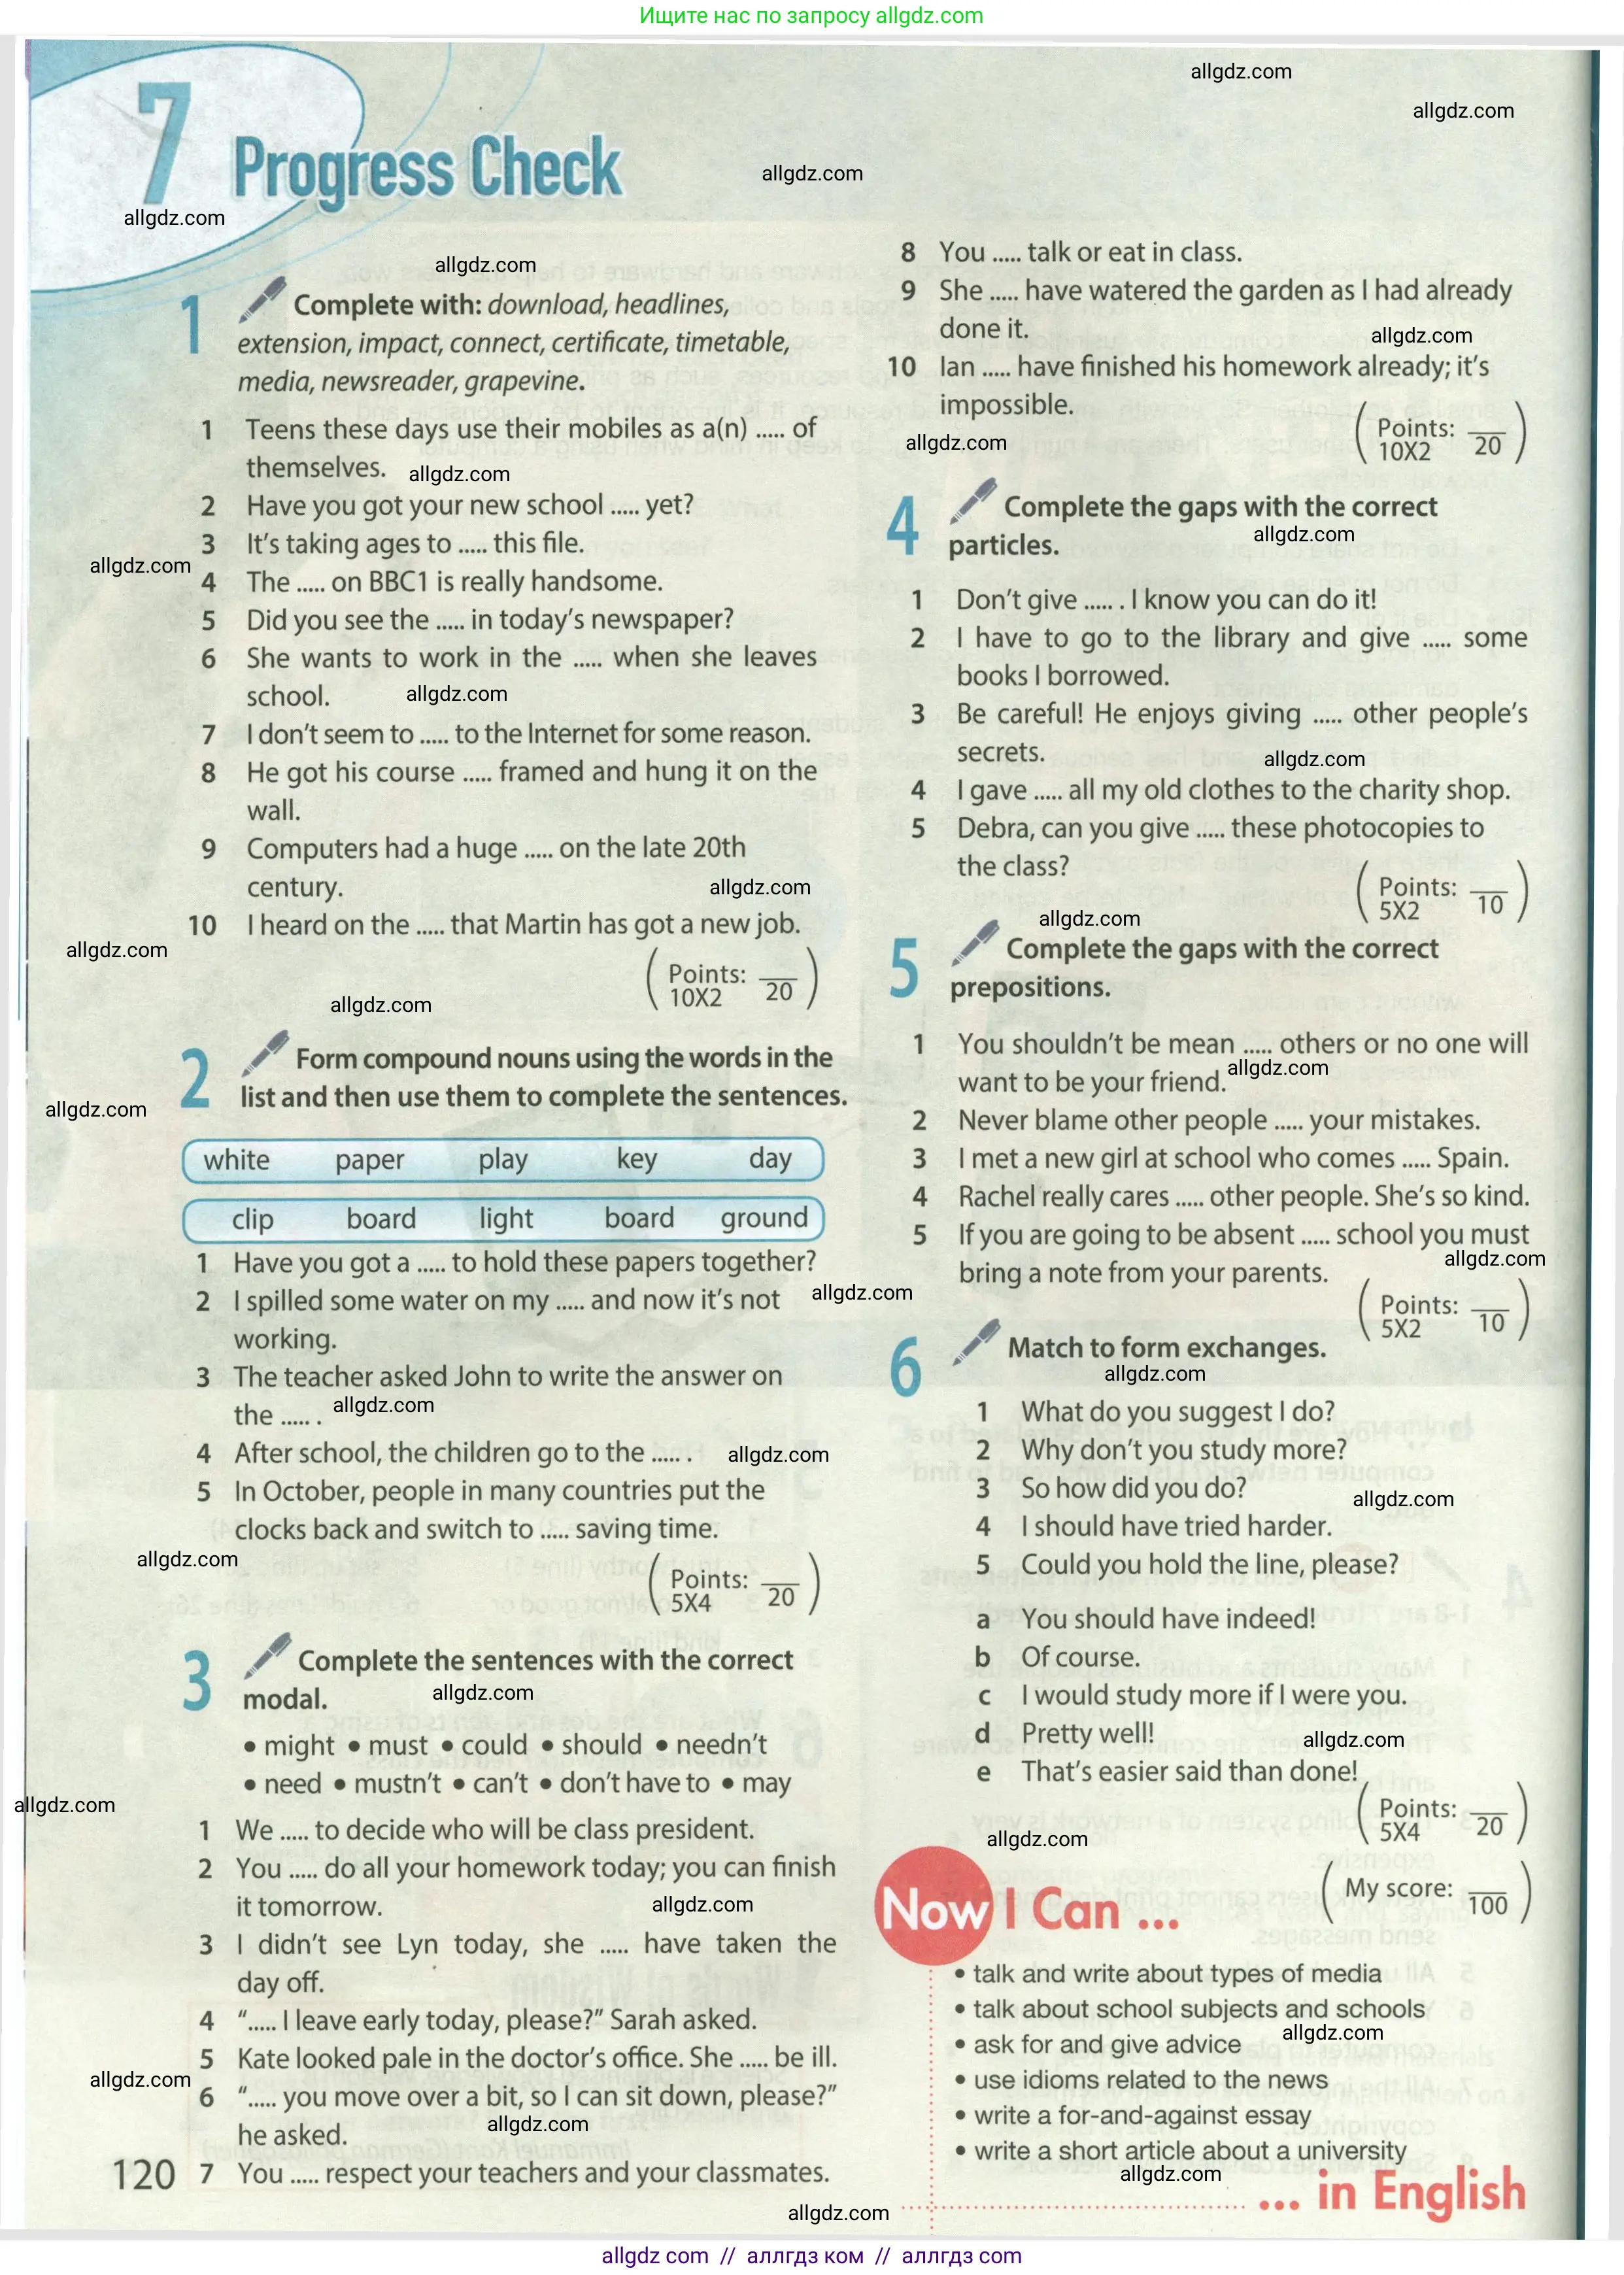 Ищите нас по запросу allgdz.com
allgdz.com
allgdz.com
7 Progress Check
allgdz.com
allgdz.com
allgdz.com
1 Complete with: download, headlines,
extension, impact, connect, certificate, timetable,
media, newsreader, grapevine.
1 Teens these days use their mobiles as a(n) ..... of
themselves. allgdz.com
2 Have you got your new school ..... yet?
3 It's taking ages to ..... this file.
allgdz.com
4 The ..... on BBC1 is really handsome.
5 Did you see the ..... in today's newspaper?
6 She wants to work in the ..... when she leaves
school. allgdz.com
7 I don't seem to ..... to the Internet for some reason.
8 He got his course ..... framed and hung it on the
wall.
9 Computers had a huge ..... on the late 20th
century. allgdz.com
10 I heard on the ..... that Martin has got a new job.
allgdz.com
( Points: ___ )
10X2 20
allgdz.com
2 Form compound nouns using the words in the
list and then use them to complete the sentences.
allgdz.com
white paper play key day
clip board light board ground
1 Have you got a ..... to hold these papers together?
2 I spilled some water on my ..... and now it's not allgdz.com
working.
3 The teacher asked John to write the answer on
the ..... . allgdz.com
4 After school, the children go to the ..... . allgdz.com
5 In October, people in many countries put the
clocks back and switch to ..... saving time.
allgdz.com
( Points: ___ )
5X4 20
3 Complete the sentences with the correct
modal. allgdz.com
• might • must • could • should • needn't
• need • mustn't • can't • don't have to • may
allgdz.com
1 We ..... to decide who will be class president.
2 You ..... do all your homework today; you can finish
it tomorrow. allgdz.com
3 I didn't see Lyn today, she ..... have taken the
day off.
4 "..... I leave early today, please?" Sarah asked.
5 Kate looked pale in the doctor's office. She ..... be ill.
allgdz.com
6 "..... you move over a bit, so I can sit down, please?"
he asked. allgdz.com
120 7 You ..... respect your teachers and your classmates.
allgdz.com
8 You ..... talk or eat in class.
9 She ..... have watered the garden as I had already
done it. allgdz.com
10 Ian ..... have finished his homework already; it's
impossible.
allgdz.com
( Points: ___ )
10X2 20
4 Complete the gaps with the correct
particles. allgdz.com
1 Don't give ..... . I know you can do it!
2 I have to go to the library and give ..... some
books I borrowed.
3 Be careful! He enjoys giving ..... other people's
secrets. allgdz.com
4 I gave ..... all my old clothes to the charity shop.
5 Debra, can you give ..... these photocopies to
the class?
( Points: ___ )
5X2 10
allgdz.com
5 Complete the gaps with the correct
prepositions.
1 You shouldn't be mean ..... others or no one will
want to be your friend. allgdz.com
2 Never blame other people ..... your mistakes.
3 I met a new girl at school who comes ..... Spain.
4 Rachel really cares ..... other people. She's so kind.
5 If you are going to be absent ..... school you must
allgdz.com
bring a note from your parents.
( Points: ___ )
5X2 10
6 Match to form exchanges.
allgdz.com
1 What do you suggest I do?
2 Why don't you study more?
3 So how did you do? allgdz.com
4 I should have tried harder.
5 Could you hold the line, please?
a You should have indeed!
b Of course.
c I would study more if I were you.
d Pretty well! allgdz.com
e That's easier said than done!
( Points: ___ )
5X4 20
allgdz.com
( My score: ___ )
100
Now I Can ...
• talk and write about types of media
• talk about school subjects and schools
• ask for and give advice allgdz.com
• use idioms related to the news
• write a for-and-against essay
• write a short article about a university
allgdz.com
... in English
allgdz com // аллгдз ком // аллгдз com